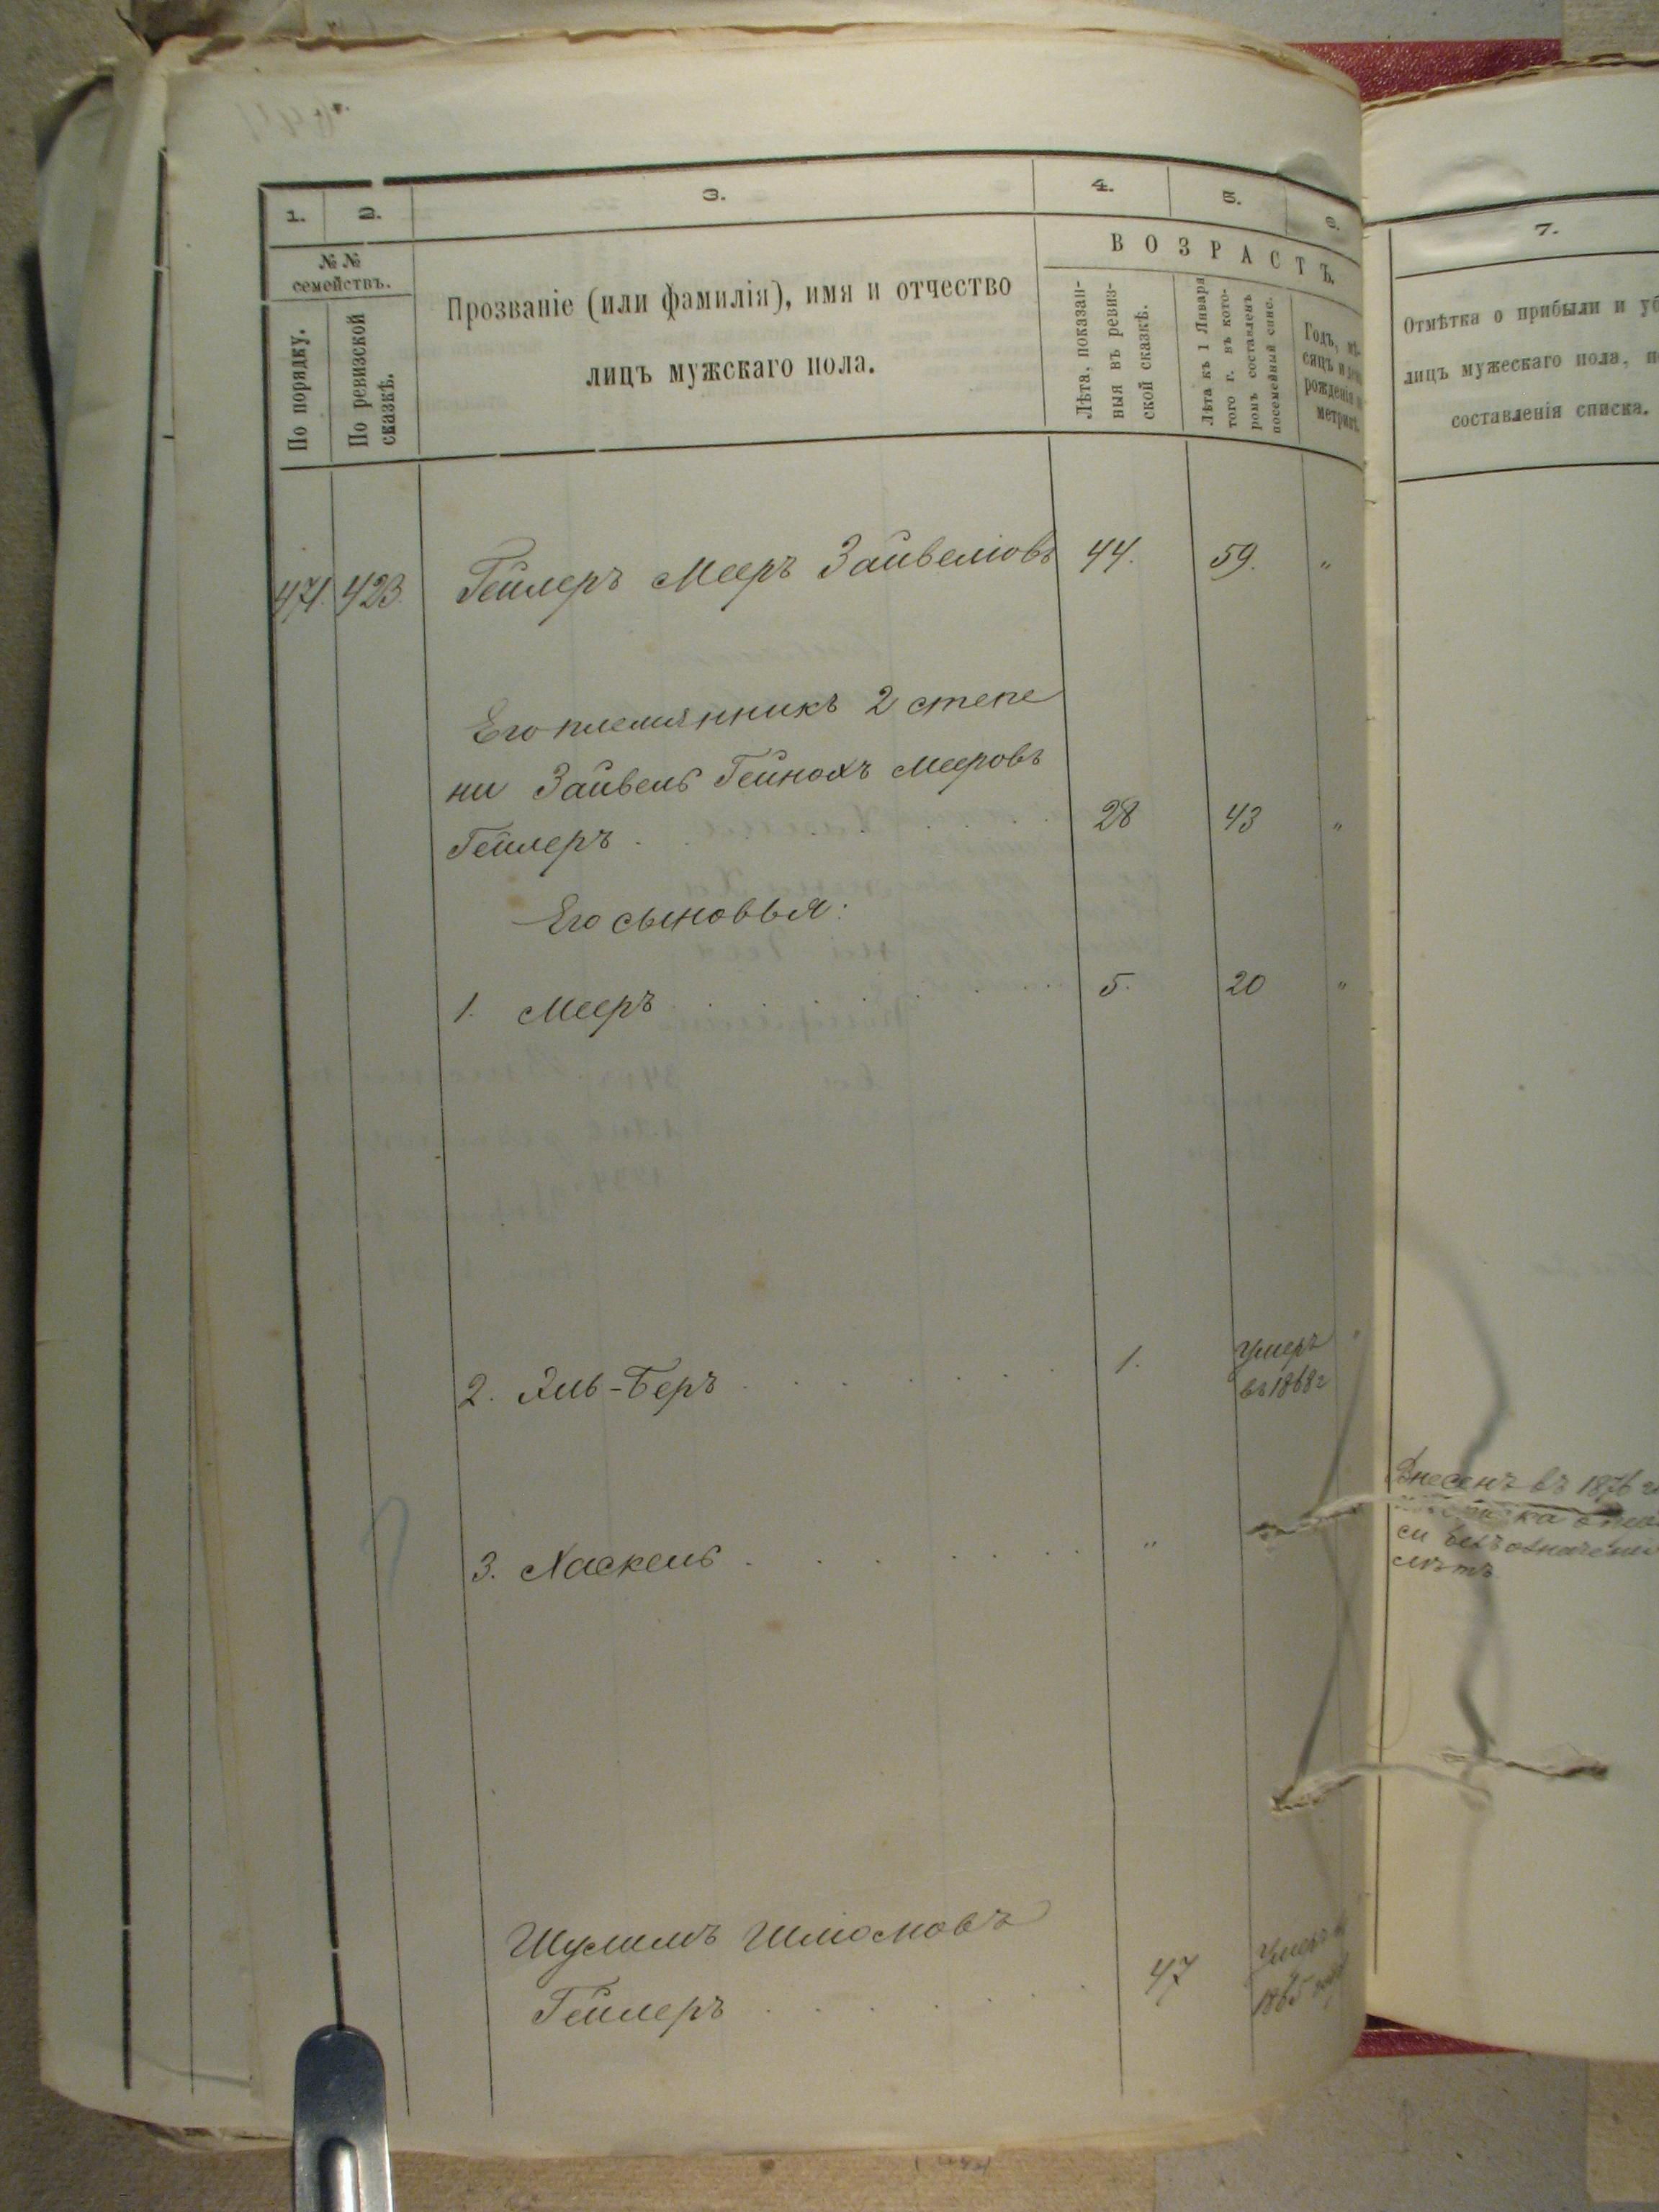 1.
2.
3.
4.
5.
6.
7.
№ №
семействъ.
По порядку.
По ревизской
сказкѣ.
Прозваніе (или фамилія), имя и отчество
лицъ мужскаго пола.
ВОЗРАСТЪ.
Лѣта, показан-
ныя въ ревиз-
ской сказкѣ.
Лѣта къ 1 Января
того г. въ кото-
ромъ составленъ
посемейный спис.
Годъ, мѣ-
сяцъ и
рожденія
метрикѣ.
Отмѣтка о прибыли и
лицъ мужескаго пола,
составленія списка.
471. 423. Гейлеръ Мееръ Зайвеліовъ 44. 59. "
Его племянникъ 2 степе
ни Зайвель Гейнохъ Мееровъ
Гейлеръ 28 43 "
Его сыновья:
1. Мееръ 5. 20 "
2. Яль-Беръ 1. Умеръ
въ 1868 г
3. Хаскель "
Внесенъ въ 1876
ка
си безъ означенія
лѣтъ
Шулимъ Шліомовъ
Гейлеръ 47 Умеръ
1865